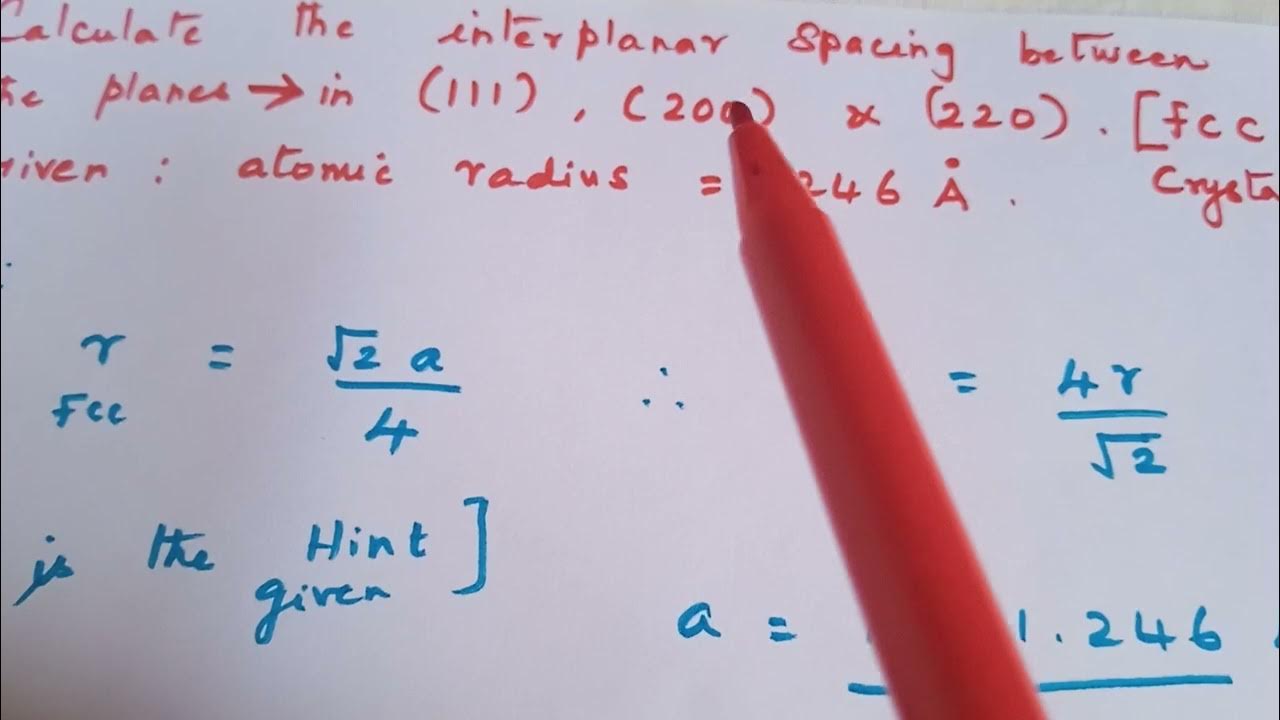 Calculate the interplanar spacing between
the planes → in (111), (200) x (220). [fcc
given : atomic radius = 246 Å. Crysta
:
r = √2 a / 4 ∴ = 4r / √2
Fcc
is the Hint ]
given
a = 1.246